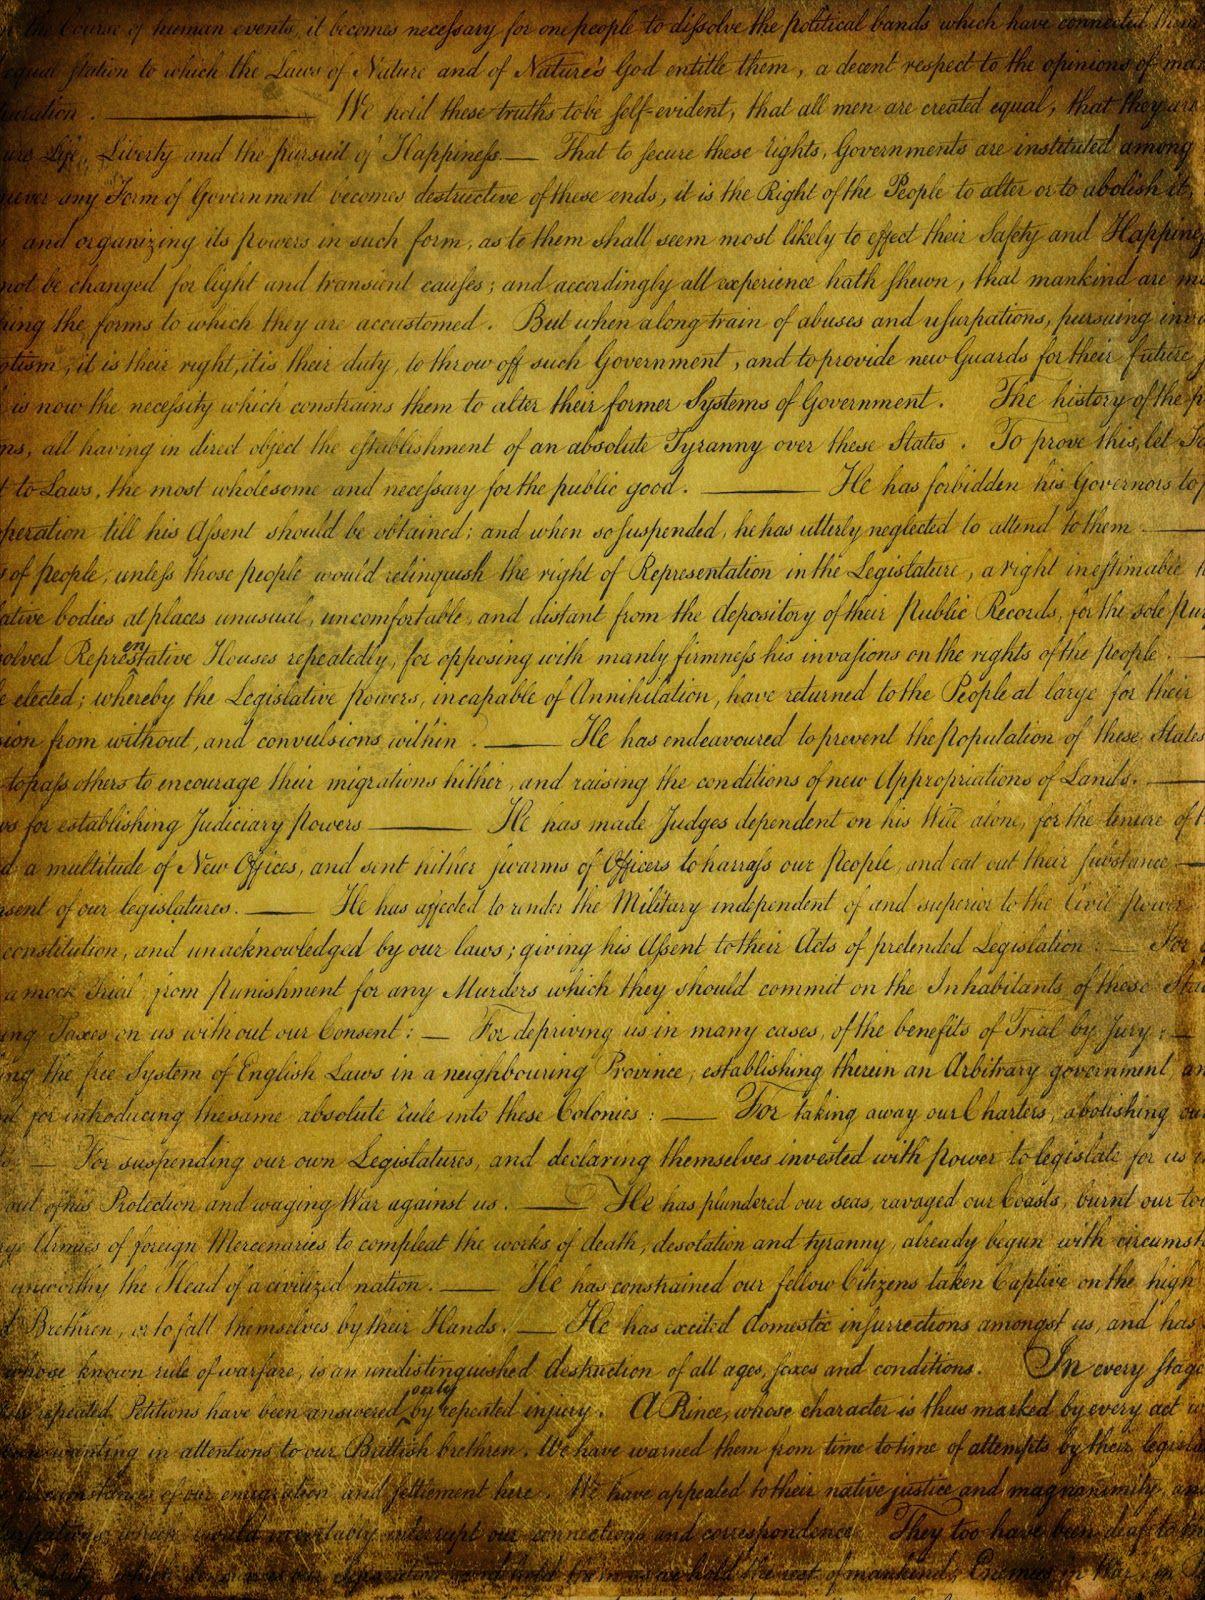 the Course of human events, it becomes necessary for one people to dissolve the political bands which have connected them
equal station to which the Laws of Nature and of Nature's God entitle them, a decent respect to the opinions of man
aration. — We hold these truths to be self-evident, that all men are created equal, that they are
are Life, Liberty and the pursuit of Happiness. — That to secure these rights, Governments are instituted among
never any Form of Government becomes destructive of these ends, it is the Right of the People to alter or to abolish it,
and organizing its powers in such form, as to them shall seem most likely to effect their Safety and Happines
not be changed for light and transient causes; and accordingly all experience hath shewn, that mankind are mo
hing the forms to which they are accustomed. But when a long train of abuses and usurpations, pursuing inva
otism, it is their right, it is their duty, to throw off such Government, and to provide new Guards for their future
is now the necessity which constrains them to alter their former Systems of Government. The history of the p
ns, all having in direct object the establishment of an absolute Tyranny over these States. To prove this, let
t to Laws, the most wholesome and necessary for the public good. — He has forbidden his Governors to p
peration till his Assent should be obtained; and when so suspended, he has utterly neglected to attend to them —
s of people, unless those people would relinquish the right of Representation in the Legislature, a right inestimable
lative bodies at places unusual, uncomfortable, and distant from the depository of their Public Records, for the sole pur
solved Represtative en Houses repeatedly, for opposing with manly firmness his invasions on the rights of the people. —
e elected; whereby the Legislative powers, incapable of Annihilation, have returned to the People at large for their
sion from without, and convulsions within. — He has endeavoured to prevent the population of these States
to pass others to encourage their migrations hither, and raising the conditions of new Appropriations of Lands. —
ws for establishing Judiciary powers — He has made Judges dependent on his Will alone, for the tenure of t
d a multitude of New Offices, and sent hither swarms of Officers to harrass our People, and eat out their substance —
nsent of our legislatures. — He has affected to render the Military independent of and superior to the Civil power
constitution, and unacknowledged by our laws; giving his Assent to their Acts of pretended Legislation: — For
a mock Trial, from punishment for any Murders which they should commit on the Inhabitants of these Sta
ing Taxes on us without our Consent: — For depriving us in many cases, of the benefits of Trial by Jury: —
ing the free System of English Laws in a neighbouring Province, establishing therein an Arbitrary government, an
nt for introducing the same absolute rule into these Colonies: — For taking away our Charters, abolishing ou
— For suspending our own Legislatures, and declaring themselves invested with power to legislate for us
out of his Protection and waging War against us. — He has plundered our seas, ravaged our Coasts, burnt our to
rge Armies of foreign Mercenaries to compleat the works of death, desolation and tyranny, already begun with circumst
unworthy the Head of a civilized nation. — He has constrained our fellow Citizens taken Captive on the high
d Brethren, or to fall themselves by their Hands. — He has excited domestic insurrections amongst us, and has
whose known rule of warfare, is an undistinguished destruction of all ages, sexes and conditions. In every stage
repeated Petitions have been answered only by repeated injury. A Prince, whose character is thus marked by every act
wanting in attentions to our Brittish brethren. We have warned them from time to time of attempts by their legisla
circumstances of our emigration and settlement here. We have appealed to their native justice and magnanimity, an
which would inevitably interrupt our connections and correspondence. They too have been deaf to the
our Separation, and hold them, as we hold the rest of mankind, Enemies in War, in